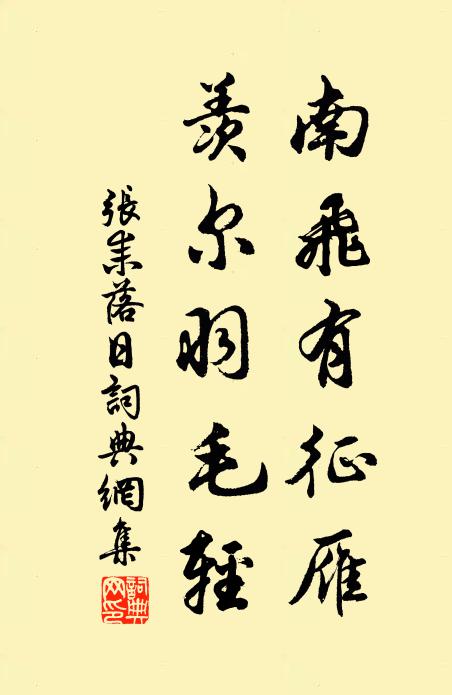 南飛有征雁
羨尔羽毛輕
張耒落日詞典網集
詞典